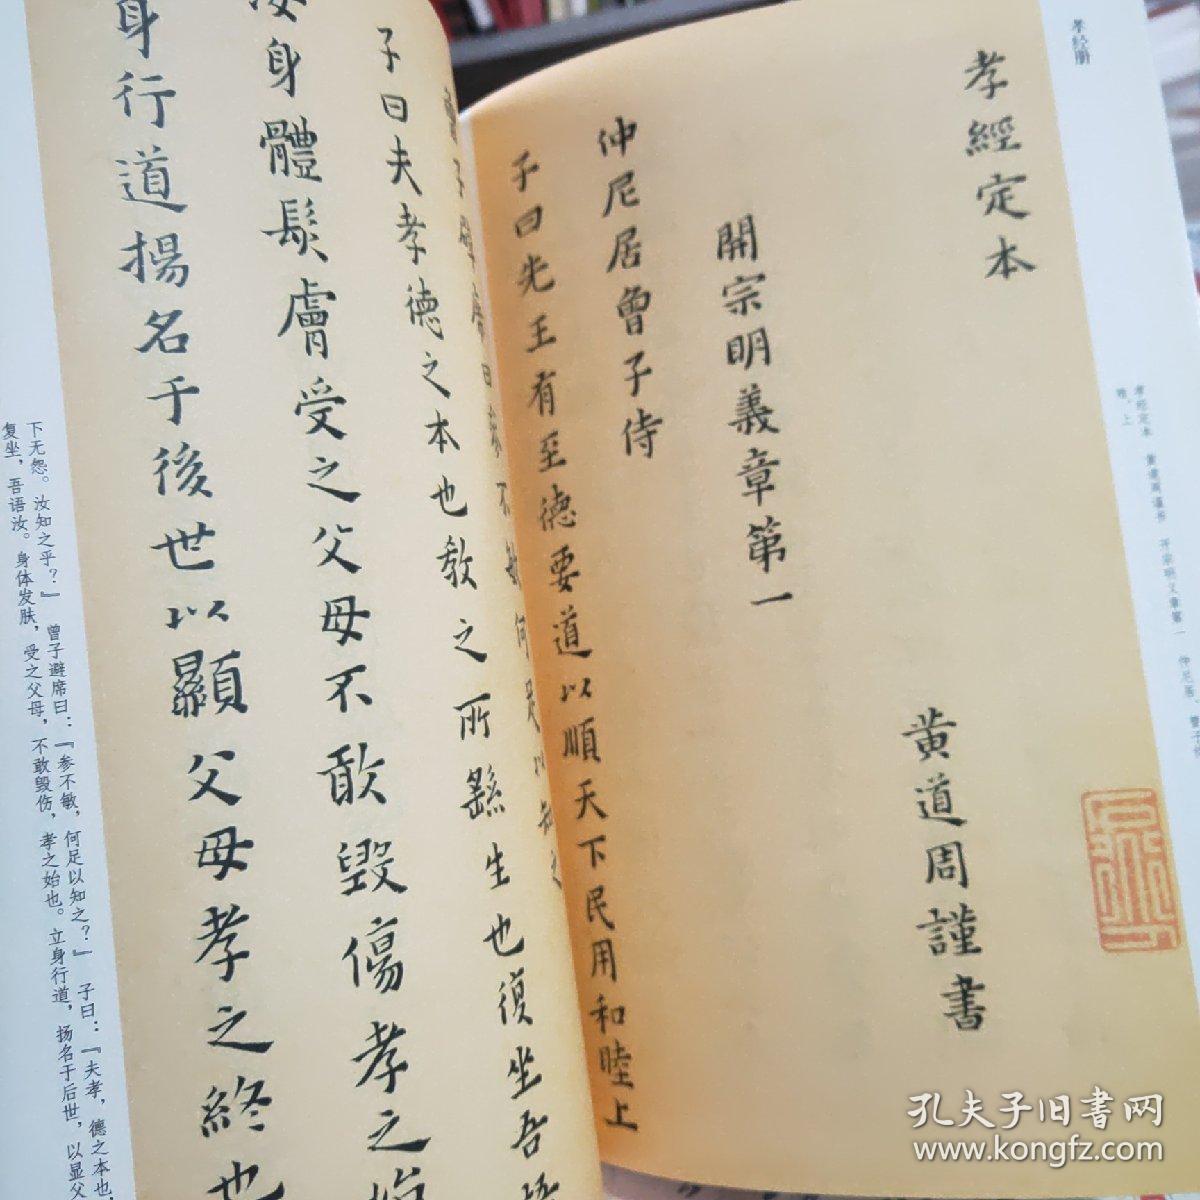 孝经册
孝經定本
黄道周謹書
開宗明義章第一
仲尼居曾子侍
子曰先王有至德要道以順天下民用和睦上
子曰夫孝德之本也教之所繇生也復坐吾
身體髮膚受之父母不敢毀傷孝之始
身行道揚名于後世以顯父母孝之終也
下无怨。汝知之乎？』 曾子避席曰：『参不敏，何足以知之？』 子曰：『夫孝，德之本也，
复坐，吾语汝。身体发肤，受之父母，不敢毁伤，孝之始也。立身行道，扬名于后世，以显父
孔夫子旧书网
www.kongfz.com